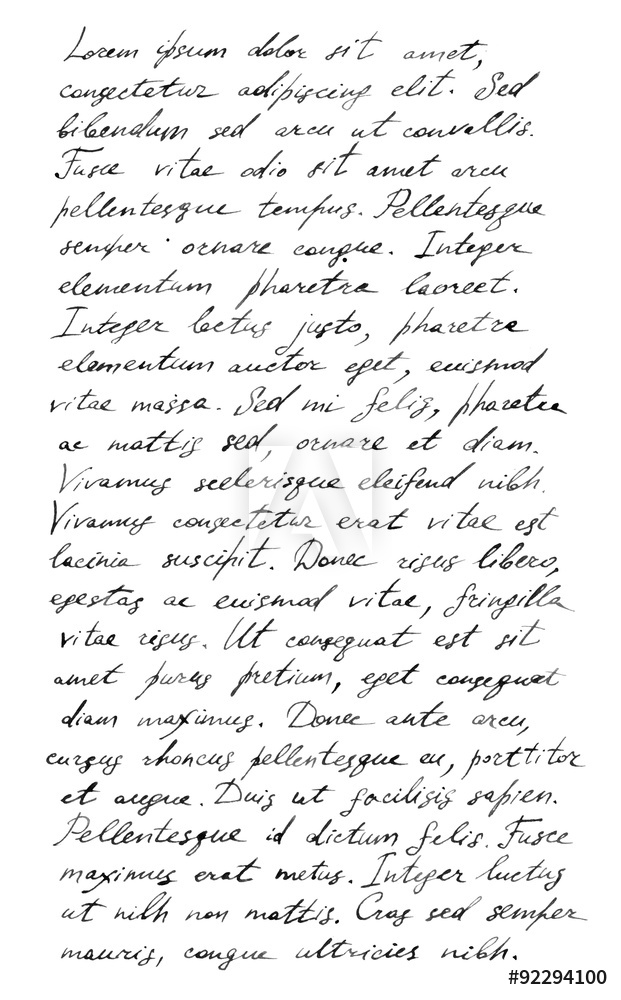 Lorem ipsum dolor sit amet,
consectetur adipiscing elit. Sed
bibendum sed arcu ut convallis.
Fusce vitae odio sit amet arcu
pellentesque tempus. Pellentesque
semper ornare congue. Integer
elementum pharetra laoreet.
Integer lectus justo, pharetra
elementum auctor eget, euismod
vitae massa. Sed mi felis, pharetra
ac mattis sed, ornare et diam.
Vivamus scelerisque eleifend nibh.
Vivamus consectetur erat vitae est
lacinia suscipit. Donec risus libero,
egestas ac euismod vitae, fringilla
vitae risus. Ut consequat est sit
amet purus pretium, eget consequat
diam maximus. Donec ante arcu,
cursus rhoncus pellentesque eu, porttitor
et augue. Duis ut facilisis sapien.
Pellentesque id dictum felis. Fusce
maximus erat metus. Integer luctus
ut nibh non mattis. Cras sed semper
mauris, congue ultricies nibh.
#92294100